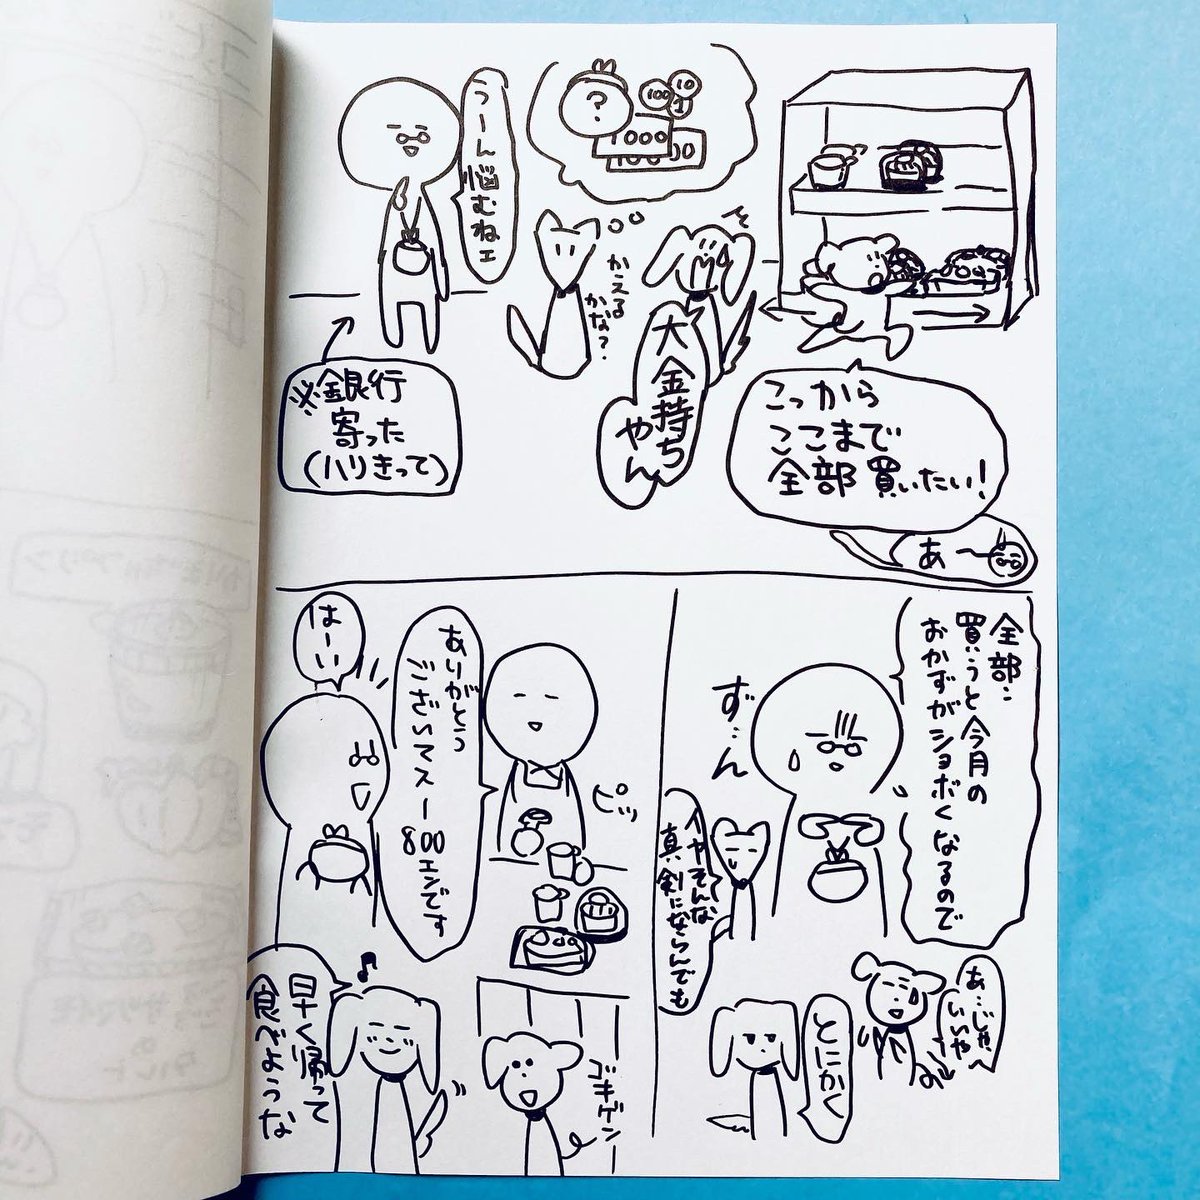 こっから
ここまで
全部買いたい!
あー
大金持ち
やん
?
100
10
1
1000
10000
かえる
かな?
うーん悩むねェ
※銀行
寄った
(ハリきって)
全部…
買うと今月の
おかずがショボくなるので
ず…ん
イヤそんな
真剣にならんでも
あ…じゃ、
いいや
とにかく
ピッ
ありがとう
ございマスー
800エンです
はーい
ゴキゲン
♪
早く帰って
食べような